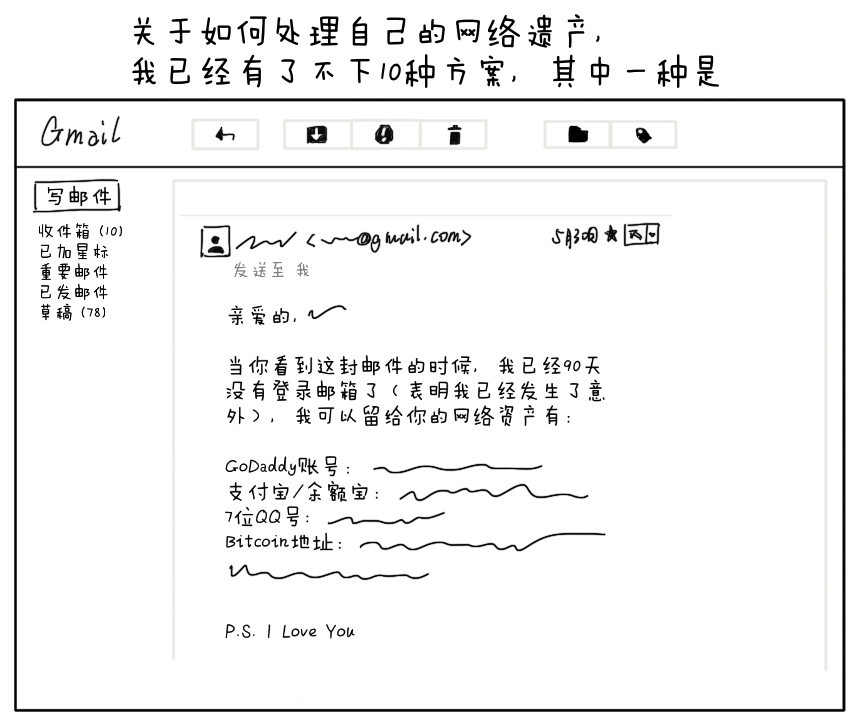 关于如何处理自己的网络遗产,
我已经有了不下10种方案, 其中一种是
Gmail
写邮件
收件箱 (10)
已加星标
重要邮件
已发邮件
草稿 (78)
<@gmail.com>
发送至 我
亲爱的,
当你看到这封邮件的时候, 我已经90天
没有登录邮箱了 (表明我已经发生了意
外), 我可以留给你的网络资产有:
GoDaddy账号:
支付宝/余额宝:
7位QQ号:
Bitcoin地址:
P.S. I Love You